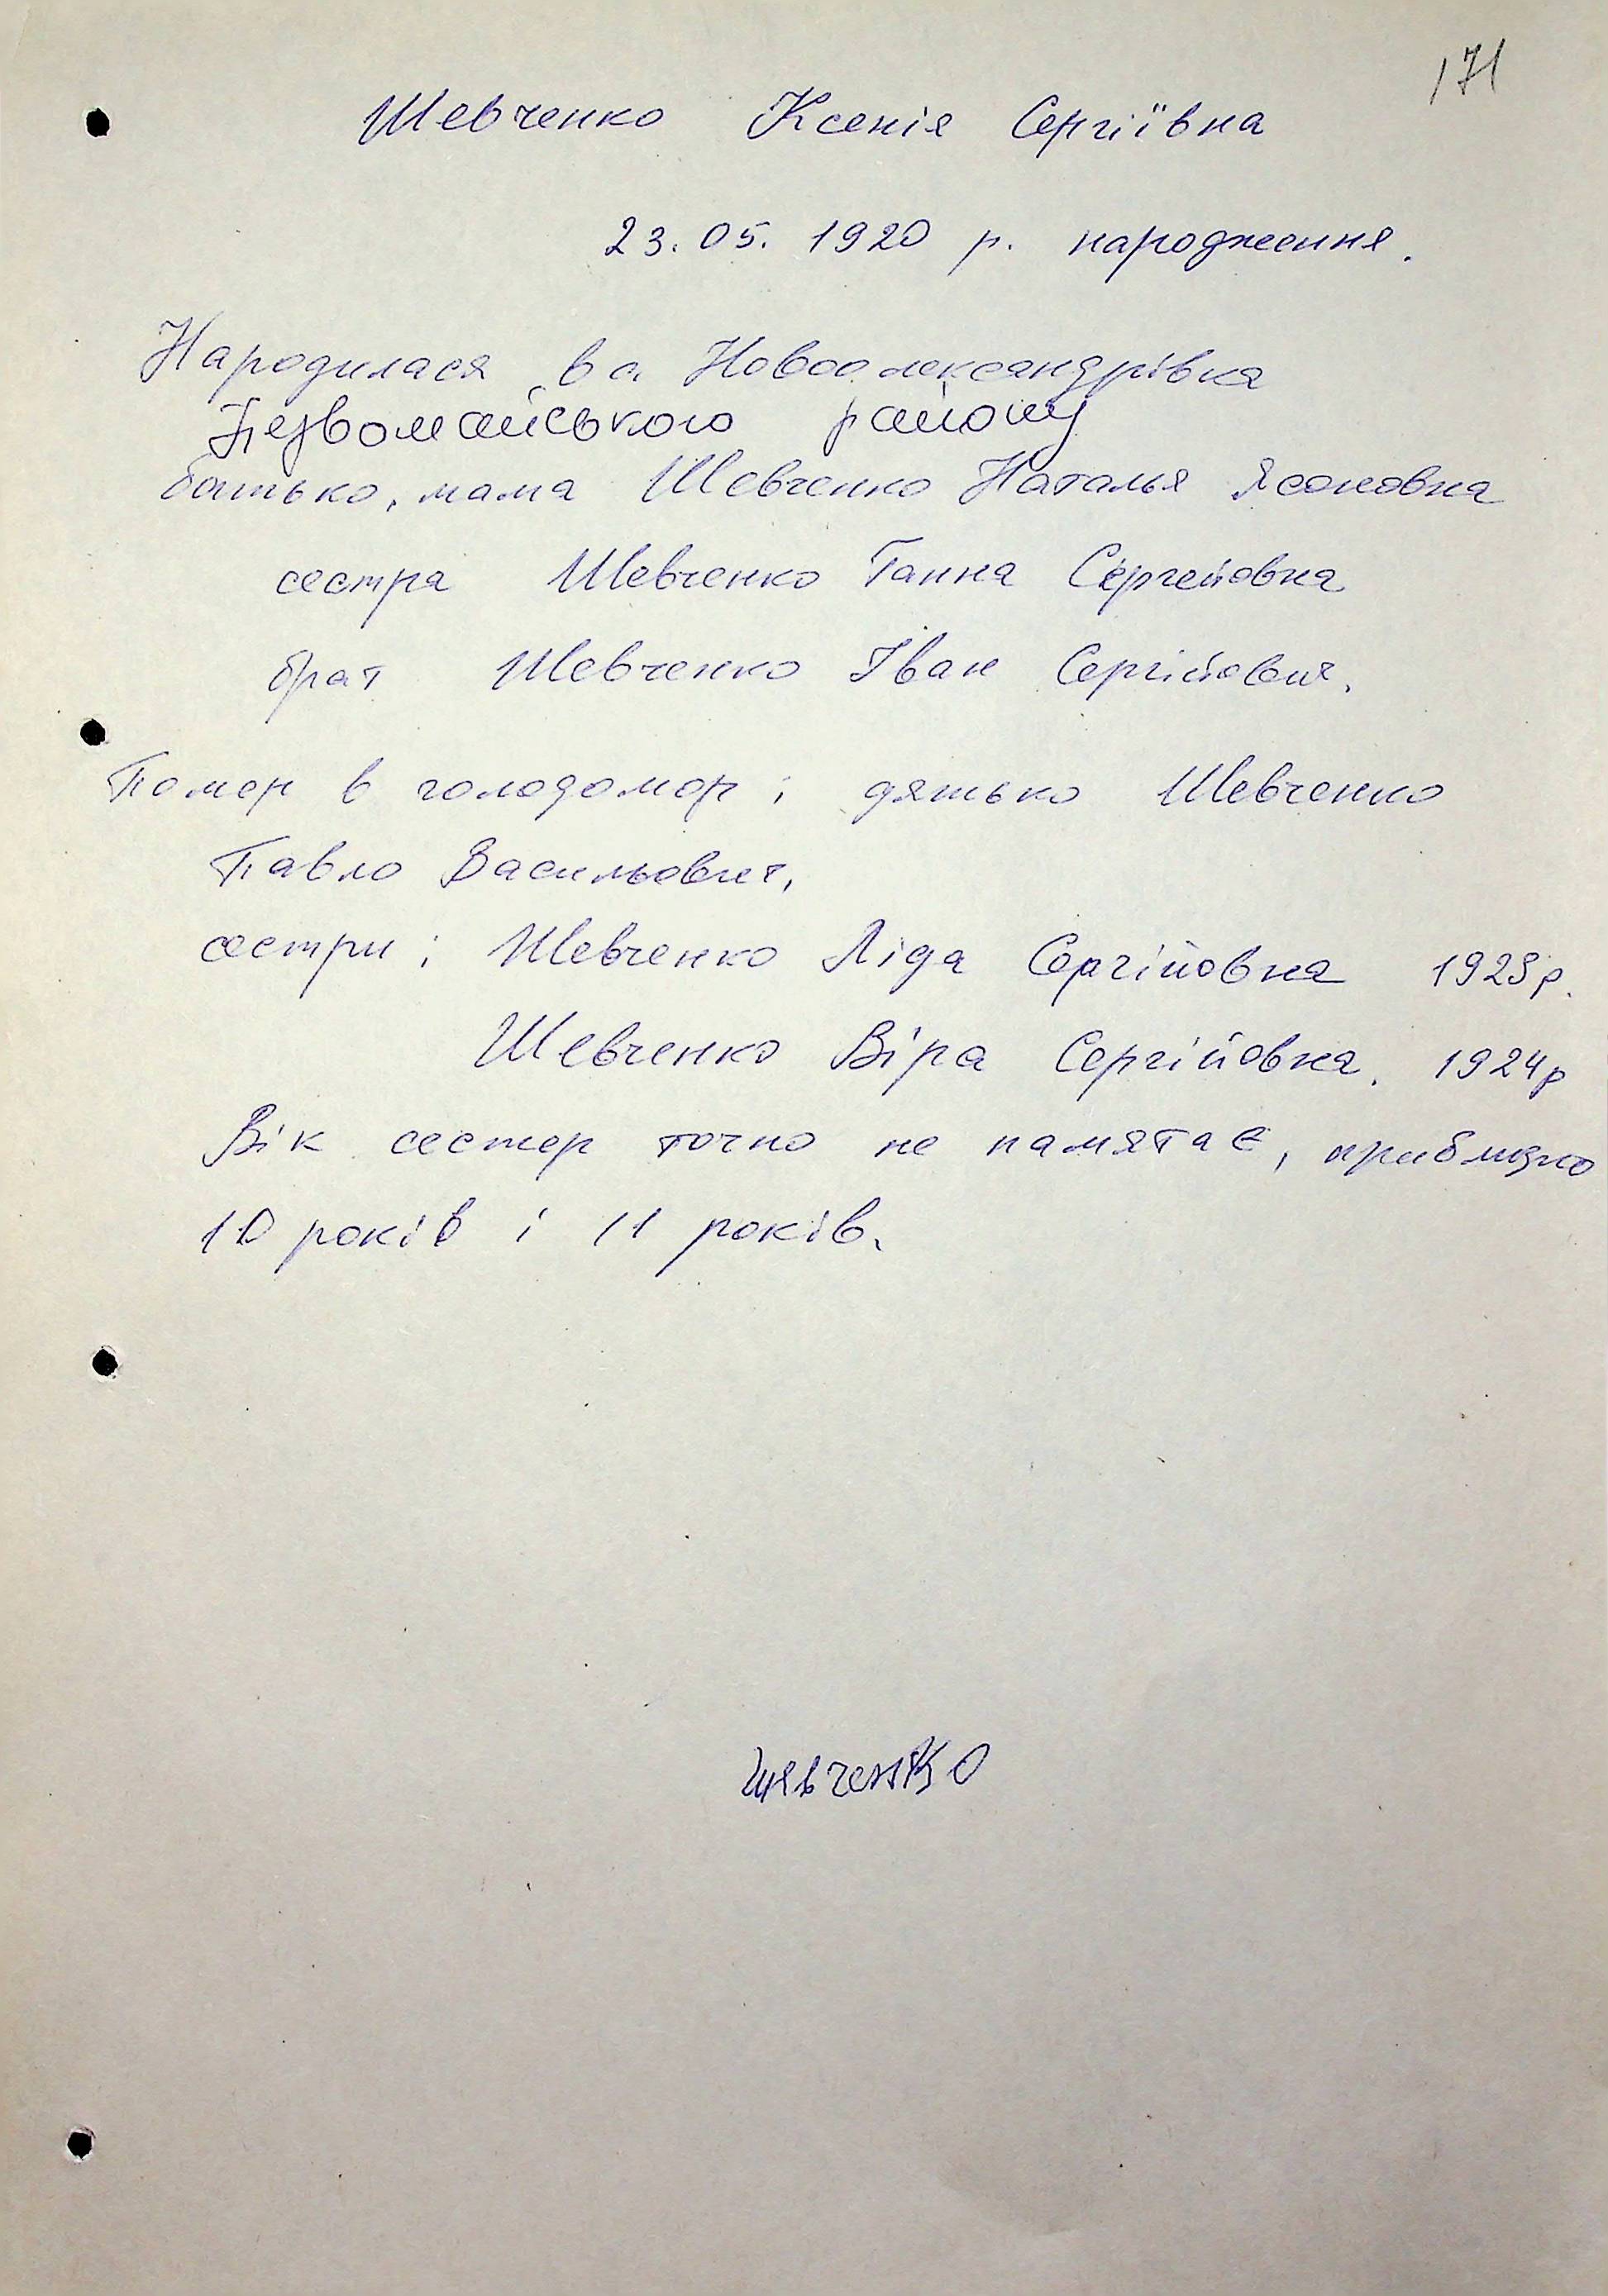 171
Шевченко Ксенія Сергіївна
23.05.1920 р. народження.
Народилася в с. Новоолександрівка
Первомайського району
батько, мама Шевченко Наталья Ясоновна
сестра Шевченко Ганна Сергейовна
брат Шевченко Іван Сергійович.
Помер в голодомор: дятько Шевченко
Павло Васильович,
сестри: Шевченко Ліда Сергійовна р.
Шевченко Віра Сергійовна. 1924р
Вік сестер точно не памятає, приблизно
10 років і 11 років.
Шевченко